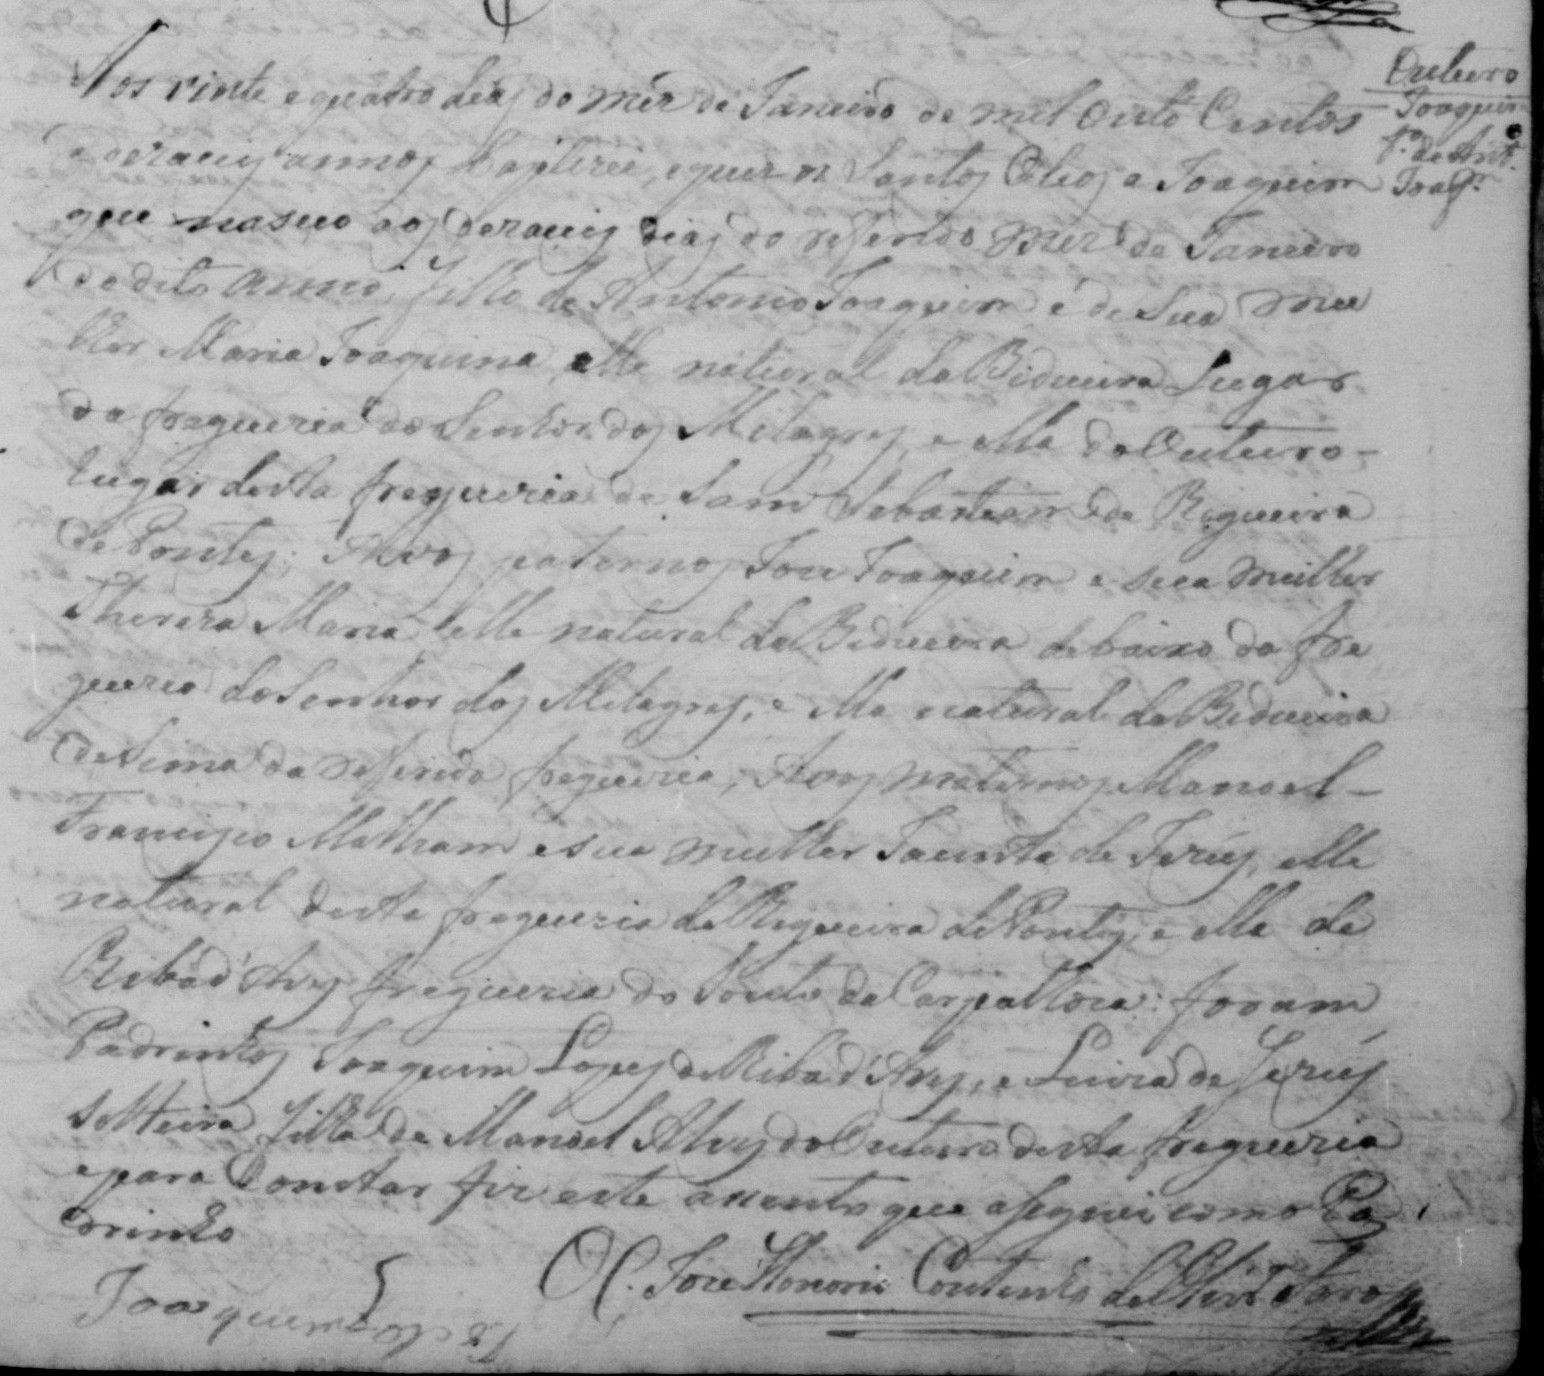 Outeiro
Joaquim
f.º de Ant.º
Joaq.m
Aos vinte e quatro dias do mez de Janeiro de mil outo Centos
e dezaceis annos baptizei, e puz os Santos Oleos a Joaquim
que nasceo aos dezaceis dias do referido mez de Janeiro
do dito anno, filho de Antonio Joaquim e de Sua mu
lher Maria Joaquina, elle natural da Bidueira Lugar
da freguezia do Senhor dos Milagres, e ella do Outeiro -
lugar desta freguezia de Sam Sebastiam da Rigueira
de Pontes; Avos paternos Joze Joaquim e sua mulher
Thereza Maria elle natural da Bidueira debaixo da fre
guezia do Senhor dos Milagres, e ella natural da Bidueira
de Sima da referida freguezia; Avos maternos Manoel -
Francisco e sua mulher Jacinta de Jezus, elle
natural desta freguezia da Rigueira de Pontes, e ella de
Riba d'Aves freguezia do Souto da Carpalhoza: foram
Padrinhos Joaquim Lopes de Riba d'Aves, e Luiza de Jezus
solteira filha de Manoel Alves do Outeiro desta freguezia
e para Constar fiz este assento que asignei como Pa
drinho
O C. Joze Honorio Coutinho de
Joaquim Lopes